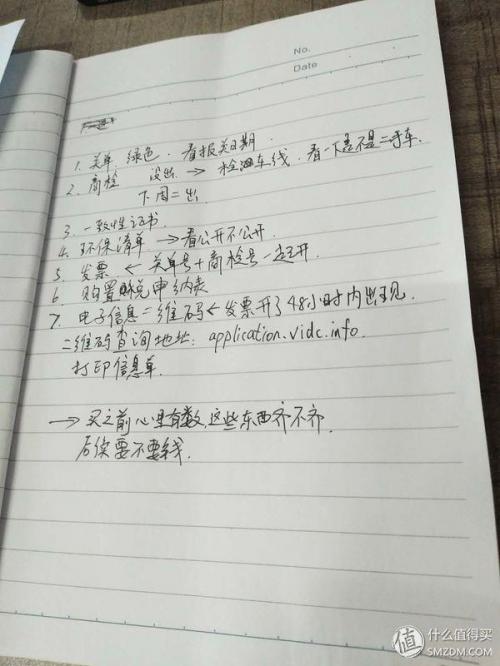 No.
Date
1. 关单 绿色. 看报关日期.
2. 商检 没出 → 检测车线. 看一下是不是二手车.
下周二出
3. 一致性证书.
4. 环保清单 → 看公开不公开.
5 发票 ← 关单号+商检号一起开.
6 购置税申纳表
7. 电子信息二维码 ← 发票开了48小时内出现.
二维码查询地址: application.vidc.info.
打印信息单.
→ 买之前心里有数, 这些东西齐不齐
后续要不要钱.
值 什么值得买
SMZDM.COM